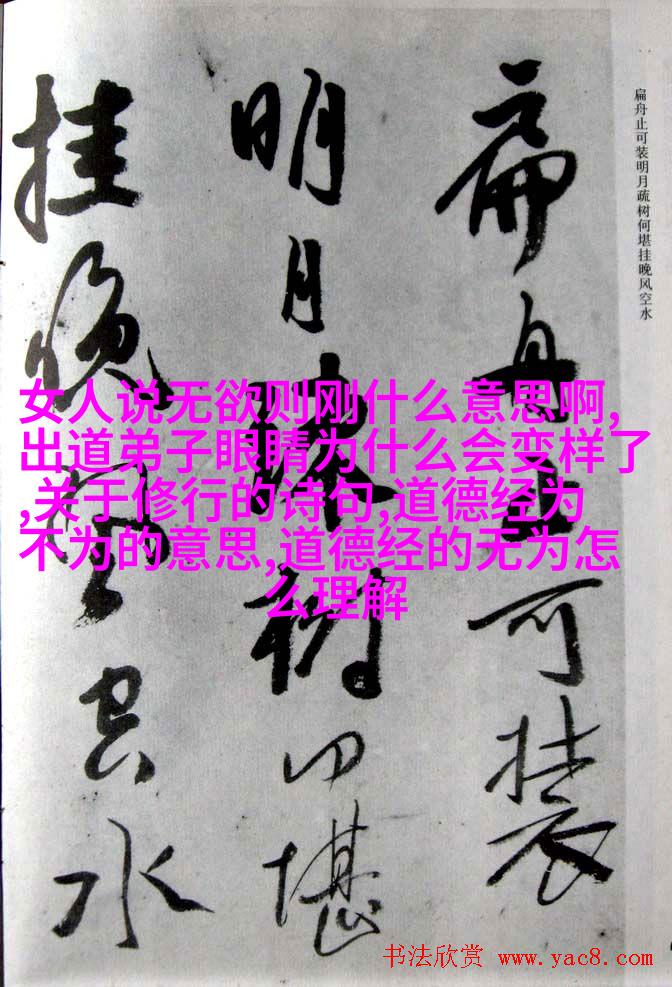 扁舟止可装
明月疏树何堪
挂晚风空水
扁舟止可装明月疏树何堪挂晚风空水
女人说无欲则刚什么意思啊,
出道弟子眼睛为什么会变样了
,关于修行的诗句,道德经为
不为的意思,道德经的无为怎
么理解
书法欣赏 www.yac8.com